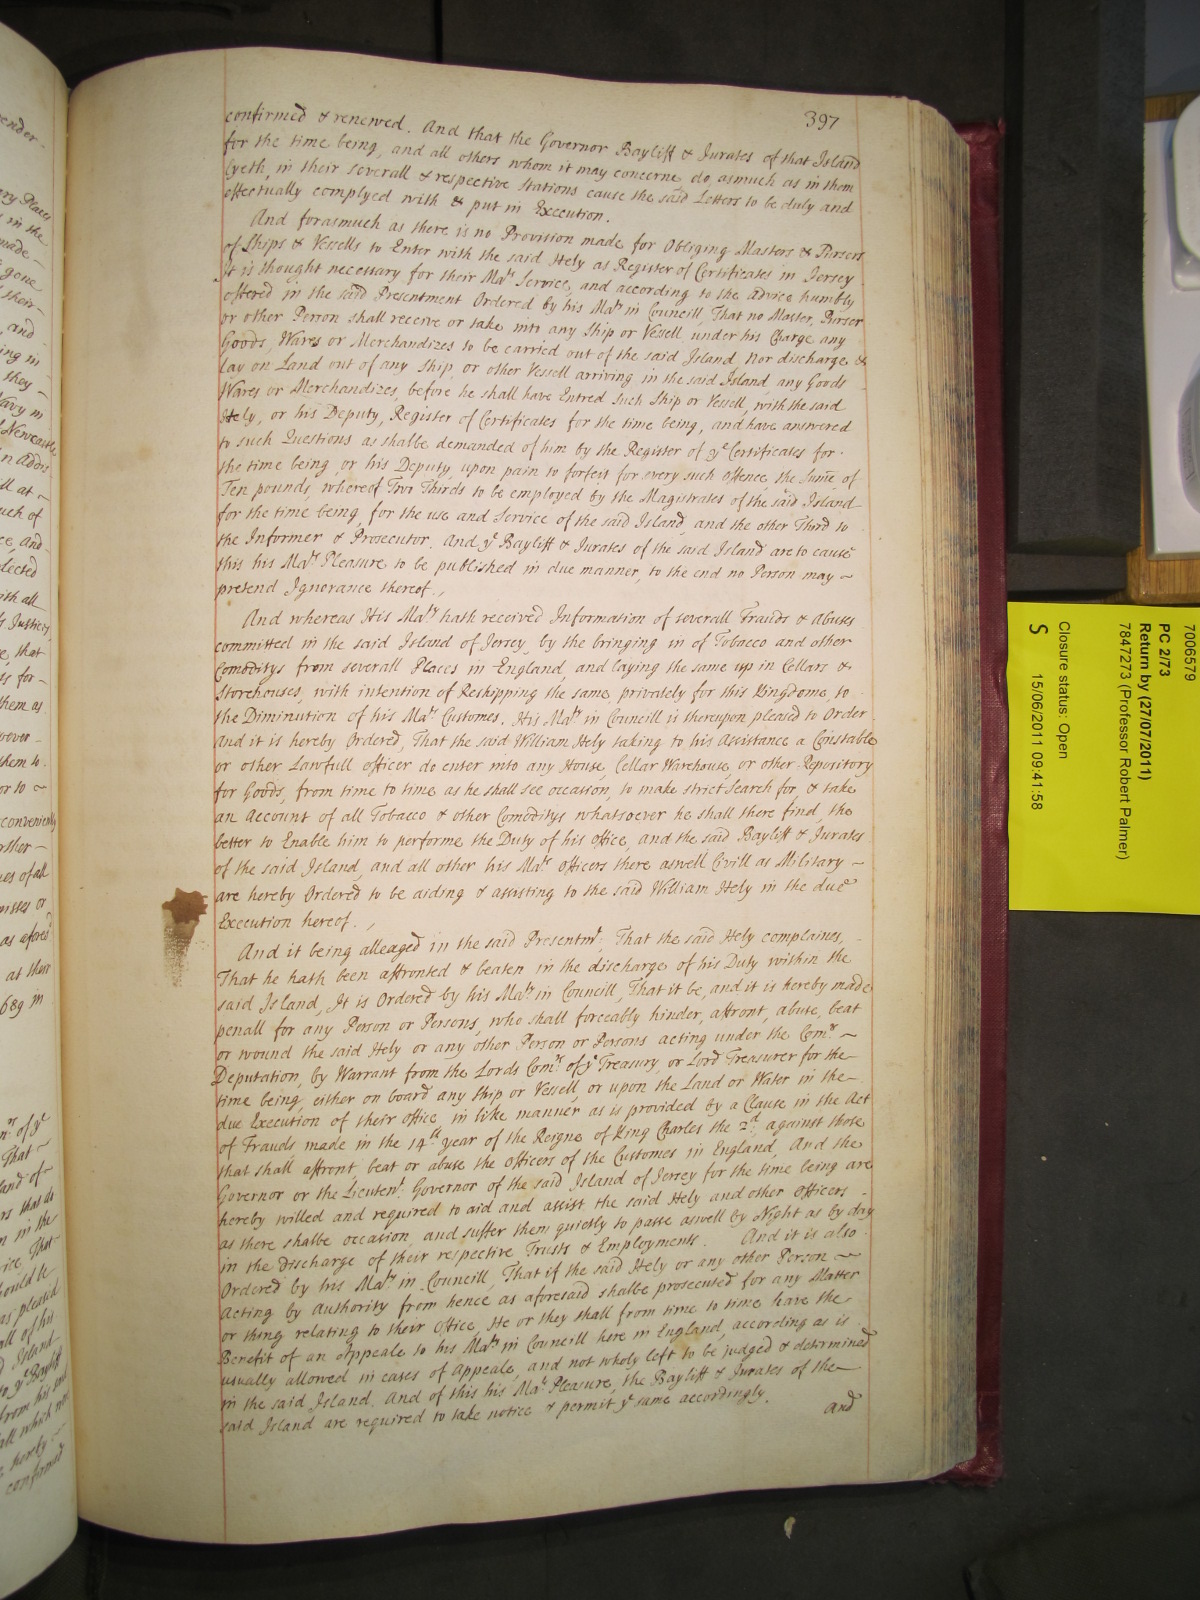 397
confirmed & renewed. And that the Governor Bayliff & Jurates of that Island
for the time being, and all others whom it may concerne do asmuch as in them
lyeth, in their severall & respective Stations cause the said Letters to be duly and
effectually complyed with & put in Execution.
And forasmuch as there is no Provision made for Obliging Masters & Pursers
of Ships & Vessells to Enter with the said Hely as Register of Certificates in Jersey
It is thought necessary for their Mats Service, and according to the advice humbly
offered in the said Presentment Ordered by his Maty in Councill, That no Master, Purser
or other Person shall receive or take into any Ship or Vessell under his Charge any
Goods, Wares or Merchandizes to be carried out of the said Island Nor discharge &
lay on Land out of any Ship or other Vessell arriving in the said Island any Goods
Wares or Merchandizes, before he shall have Entred Such Ship or Vessell, with the said
Hely, or his Deputy, Register of Certificates for the time being, and have answered
to such Questions as shalbe demanded of him by the Register of ye Certificates for
the time being or his Deputy upon pain to forfeit for every such offence, the Sume of
Ten pounds, whereof Two Thirds to be employed by the Magistrates of the said Island
for the time being, for the use and Service of the said Island, and the other Third to
the Informer & Prosecutor. And ye Bayliff & Jurates of the said Island are to cause
this his Mats Pleasure to be published in due manner, to the end no Person may ~
pretend Ignorance thereof.,
And whereas His Maty hath received Information of severall Frauds & Abuses
committed in the said Island of Jersey, by the bringing in of Tobacco and other
Comoditys from severall Places in England, and laying the same up in Cellars &
Storehouses, with intention of Reshipping the same privately for this Kingdome, to
the Diminution of his Mats Customes. His Maty in Councill is thereupon pleased to Order
And it is hereby Ordered, That the said William Hely taking to his Assistance a Constable
or other Lawfull officer do enter into any House, Cellar Warehouse, or other Repository
for Goods, from time to time as he shall see occasion, to make strict Search for, & take
an Account of all Tobacco & other Comoditys whatsoever he shall there find, the
better to Enable him to performe the Duty of his office, and the said Bayliff & Jurates
of the said Island, and all other his Mats officers there aswell Civill as Military ~
are hereby Ordered to be aiding & assisting to the said William Hely in the due
Execution hereof.,
And it being alleaged in the said Presentmt. That the said Hely complaines,
That he hath been affronted & beaten in the discharge of his Duty within the
said Island, It is Ordered by his Maty in Councill, That it be, and it is hereby made
penall for any Person or Persons, who shall forceably hinder, affront, abuse, beat
or wound the said Hely or any other Person or Persons acting under the Comrs ~
Deputation, by Warrant from the Lords Comrs of ye Treasury, or Lord Treasurer for the
time being, either on board any Ship or Vessell, or upon the Land or Water in the
due Execution of their office, in like manner as is provided by a Clause in the Act
of Frauds, made in the 14th year of the Reigne of King Charles the 2d. against those
that shall affront beat or abuse the officers of the Customes in England, And the
Governor or the Lieutent. Governor of the said Island of Jersey for the time being are
hereby willed and required to aid and assist the said Hely and other officers
as there shalbe occasion, and suffer them quietly to passe aswell by Night as by day
in the discharge of their respective Trusts & Employments. And it is also
Ordered by his Maty in Councill, That if the said Hely or any other Person ~
Acting by Authority from hence as aforesaid shalbe prosecuted for any Matter
or thing relating to their Office, He or they shall from time to time have the
Benefit of an Appeale to his Maty in Councill here in England, according as is
usually allowed in cases of Appeale, and not wholy left to be judged & determined
in the said Island. And of this his Mats Pleasure, the Bayliff & Jurates of the
said Island are required to take notice & permit ye same accordingly.
and
7006579
PC 2/73
Return by (27/07/2011)
7847273 (Professor Robert Palmer)
Closure status: Open
S 15/06/2011 09:41:58